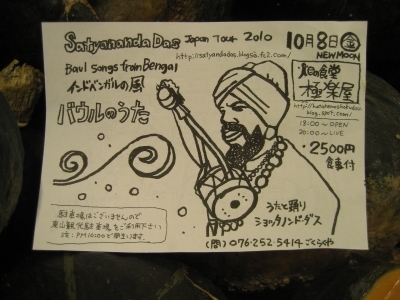 Satyananda Das Japan Tour 2010
http://satyandadas.blog62.fc2.com/
Baul songs from Bengal
インド・ベンガルの風
バウルのうた
10月8日(金)
NEW MOON
の食堂
極楽屋
blog.spot.com/
18:00〜OPEN
20:00〜LIVE
・2500円
食事付
うたと踊り
ショッタノンド・ダス
駐車場はございませんので
東山観光駐車場をご利用下さい
注:PM10:00で閉まります。
(問)076-252-5414 ごくらくや